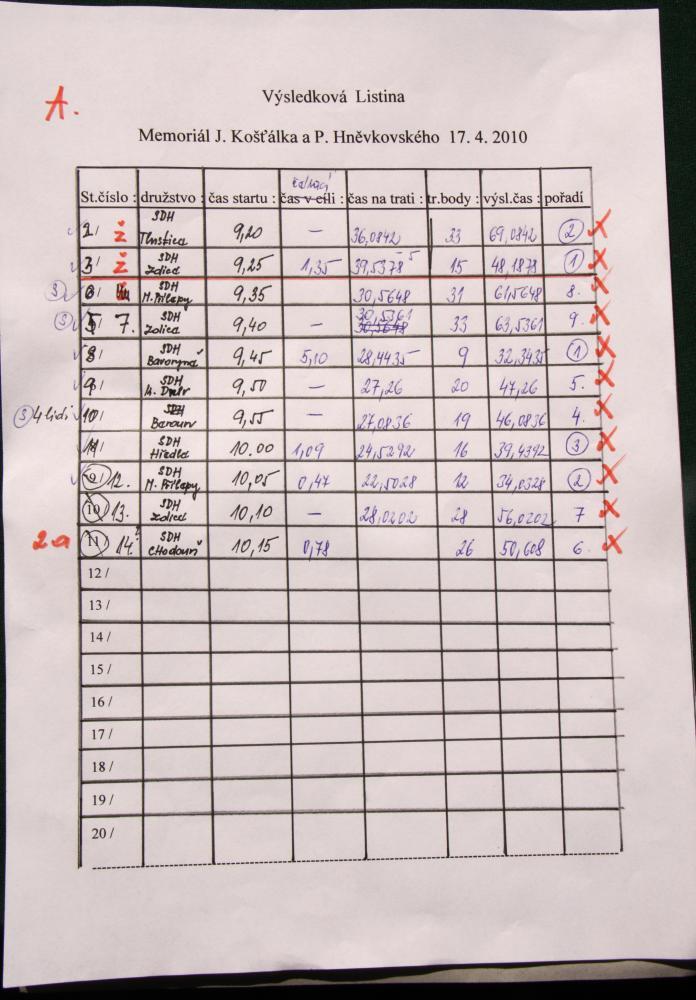 A.
Výsledková Listina
Memoriál J. Košťálka a P. Hněvkovského 17. 4. 2010
čekací
St.číslo : družstvo : čas startu : čas v cíli : čas na trati : tr.body : výsl.čas : pořadí
2/ ž SDH Tlustice 9,20 – 36,0842 33 69,0842 2
3/ ž SDH Zdice 9,25 1,35 39,5378 -5 15 48,1878 1
3 6/ SDH M.Přílepy 9,35 30,5648 31 61,5648 8.
3 7. SDH Zdice 9,40 – 30,5361 33 63,5361 9.
8/ SDH 9,45 5,10 28,4435 9 32,3435 1
9/ SDH 9,50 – 27,26 20 47,26 5.
3 4 lidi 10/ SDH Beroun 9,55 – 27,0836 19 46,0836 4.
11/ SDH Hředle 10.00 1,09 24,5292 16 39,4392 3
9/ 12. SDH M. Přílepy 10,05 0,47 22,5028 12 34,0328 2
10/ 13. SDH Zdice 10,10 – 28,0202 28 56,0202 7
11/ 14. SDH Chodouň 10,15 0,78 26 50,608 6.
12 /
13 /
14 /
15 /
16 /
17 /
18 /
19 /
20 /